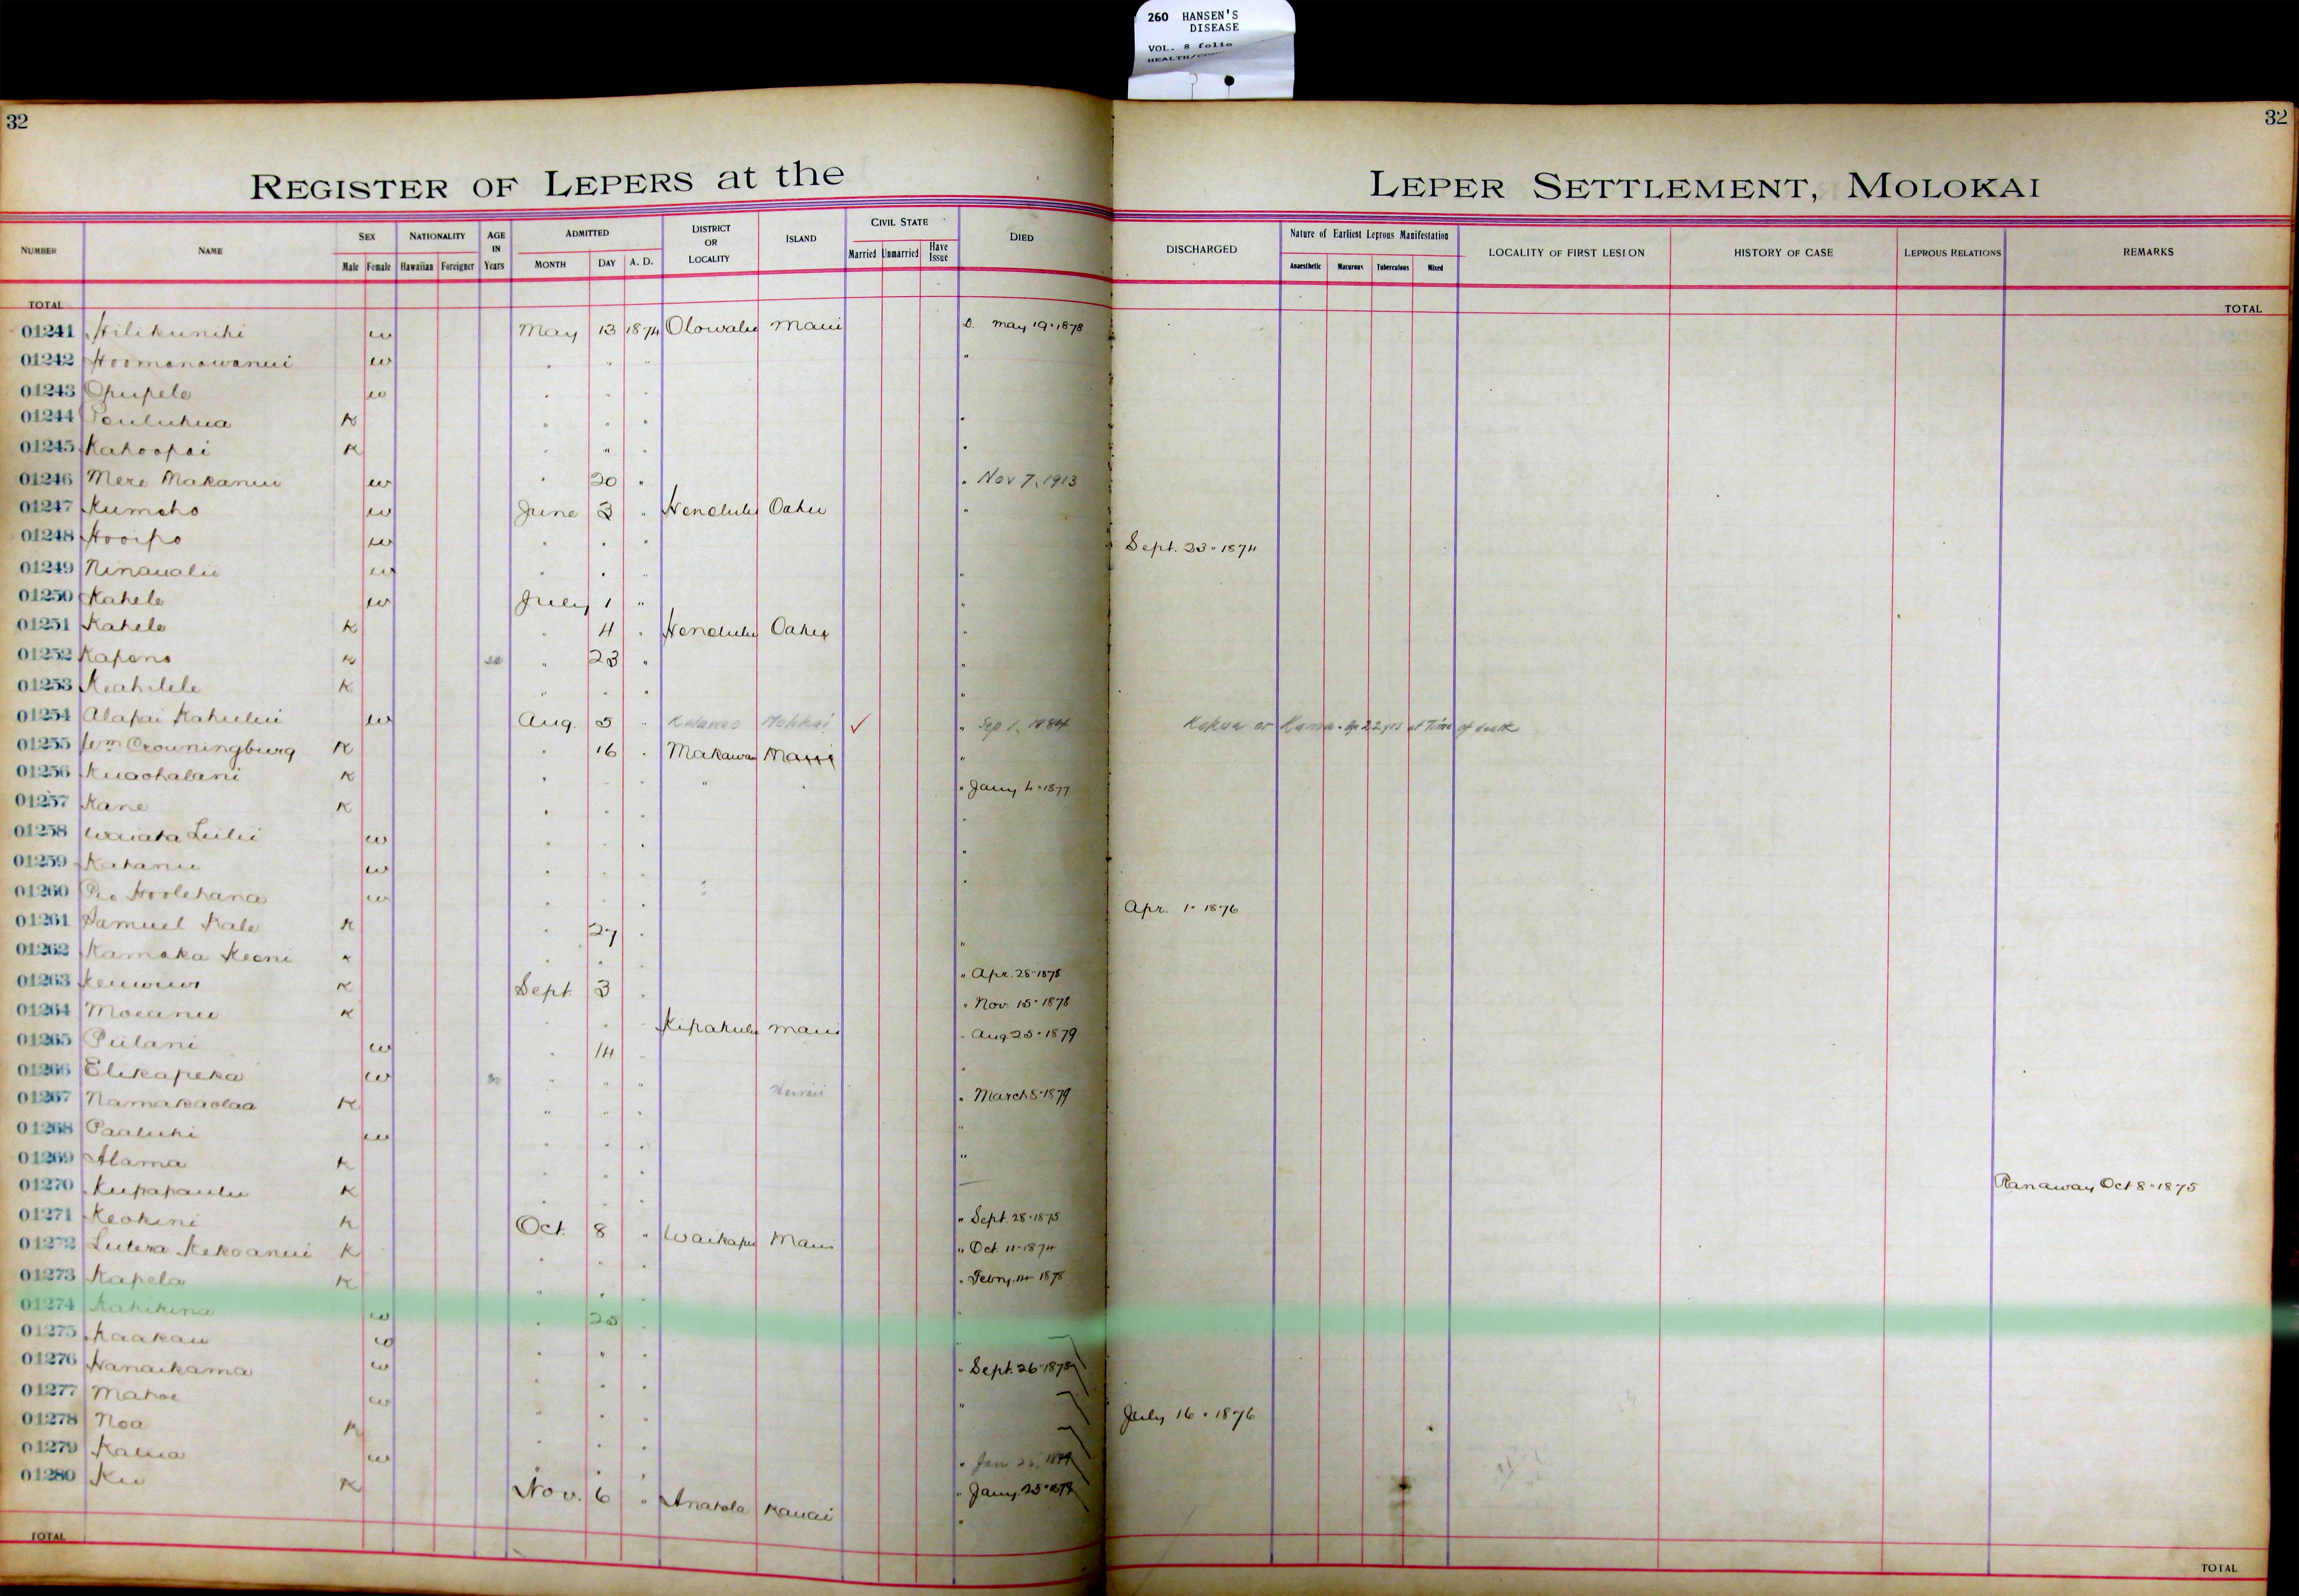 260 HANSEN'S
DISEASE
VOL. 8 folio
32
32
REGISTER OF LEPERS at the LEPER SETTLEMENT, MOLOKAI
NUMBER NAME SEX Male Female NATIONALITY Hawaiian Foreigner AGE IN Years ADMITTED MONTH DAY A. D. DISTRICT OR LOCALITY ISLAND CIVIL STATE Married Unmarried Have Issue DIED DISCHARGED Nature of Earliest Leprous Manifestation Anaesthetic Macurous Tuberculous Mixed LOCALITY OF FIRST LESION HISTORY OF CASE LEPROUS RELATIONS REMARKS
TOTAL TOTAL
01241 Hilikunihi w May 13 1874 Olowalu Maui D. May 19 - 1878
01242 Hoomanawanui w " " " "
01243 Opupele w " " "
01244 Pauluhua K " " " "
01245 Kahoopai K " " " "
01246 Mere Makanui w " 20 " " Nov 7, 1913
01247 Kumeho w June 3 " Honolulu Oahu "
01248 Hooipo w " " " Sept. 23 - 1874
01249 Ninaualii w " " " "
01250 Kahele w July 1 " "
01251 Kahele K " 4 " Honolulu Oahu "
01252 Kapena K " 23 " "
01253 Keahilele K " " " "
01254 Alapai Kahului w Aug. 5 " Kalawao Molokai ✓ " Sep 1, 1884 Kokua or Kamaa. Age 22 yrs at Time of death
01255 Wm Crowningburg K " 16 " Makawao Maui "
01256 Kuaohalani K " " " " " " Jany 4 - 1877
01257 Kane K " " " "
01258 Waiaka Liilii w " " " "
01259 Kahanu w " " " "
01260 Pio Hoolehana w " " " Apr. 1 - 1876
01261 Samuel Kale K " 27 " "
01262 Kamaka Keoni K " " " Apr. 28 - 1878
01263 Keuwiwi K Sept. 3 " " Nov. 15 - 1878
01264 Moeanu K " " " Kipahulu Maui " Aug 25 - 1879
01265 Piilani w " 14 " "
01266 Elikapeka w 30 " " " Hawaii " March 5 - 1879
01267 Namakaolaa K " " " "
01268 Paaluhi w " " " "
01269 Alama K " " "
01270 Kupapaulu K " " " Ranaway Oct 8 - 1875
01271 Keokini K Oct. 8 " Waikapu Maui " Sept. 28 - 1875
01272 Lutera Kekoanui K " " " " Oct. 11 - 1874
01273 Kapela K " " " " Febry. 14 - 1878
01274 Kahikina w " 20 " "
01275 Kaakau w " " " "
01276 Nanaikama w " " " " Sept. 26 - 1878
01277 Mahoe w " " " "
01278 Noa K " " " July 16 - 1876
01279 Kalua w " " " " Jan 26, 1879
01280 Ku K Nov. 6 " Anahola Kauai " Jany. 25 - 1879
TOTAL TOTAL